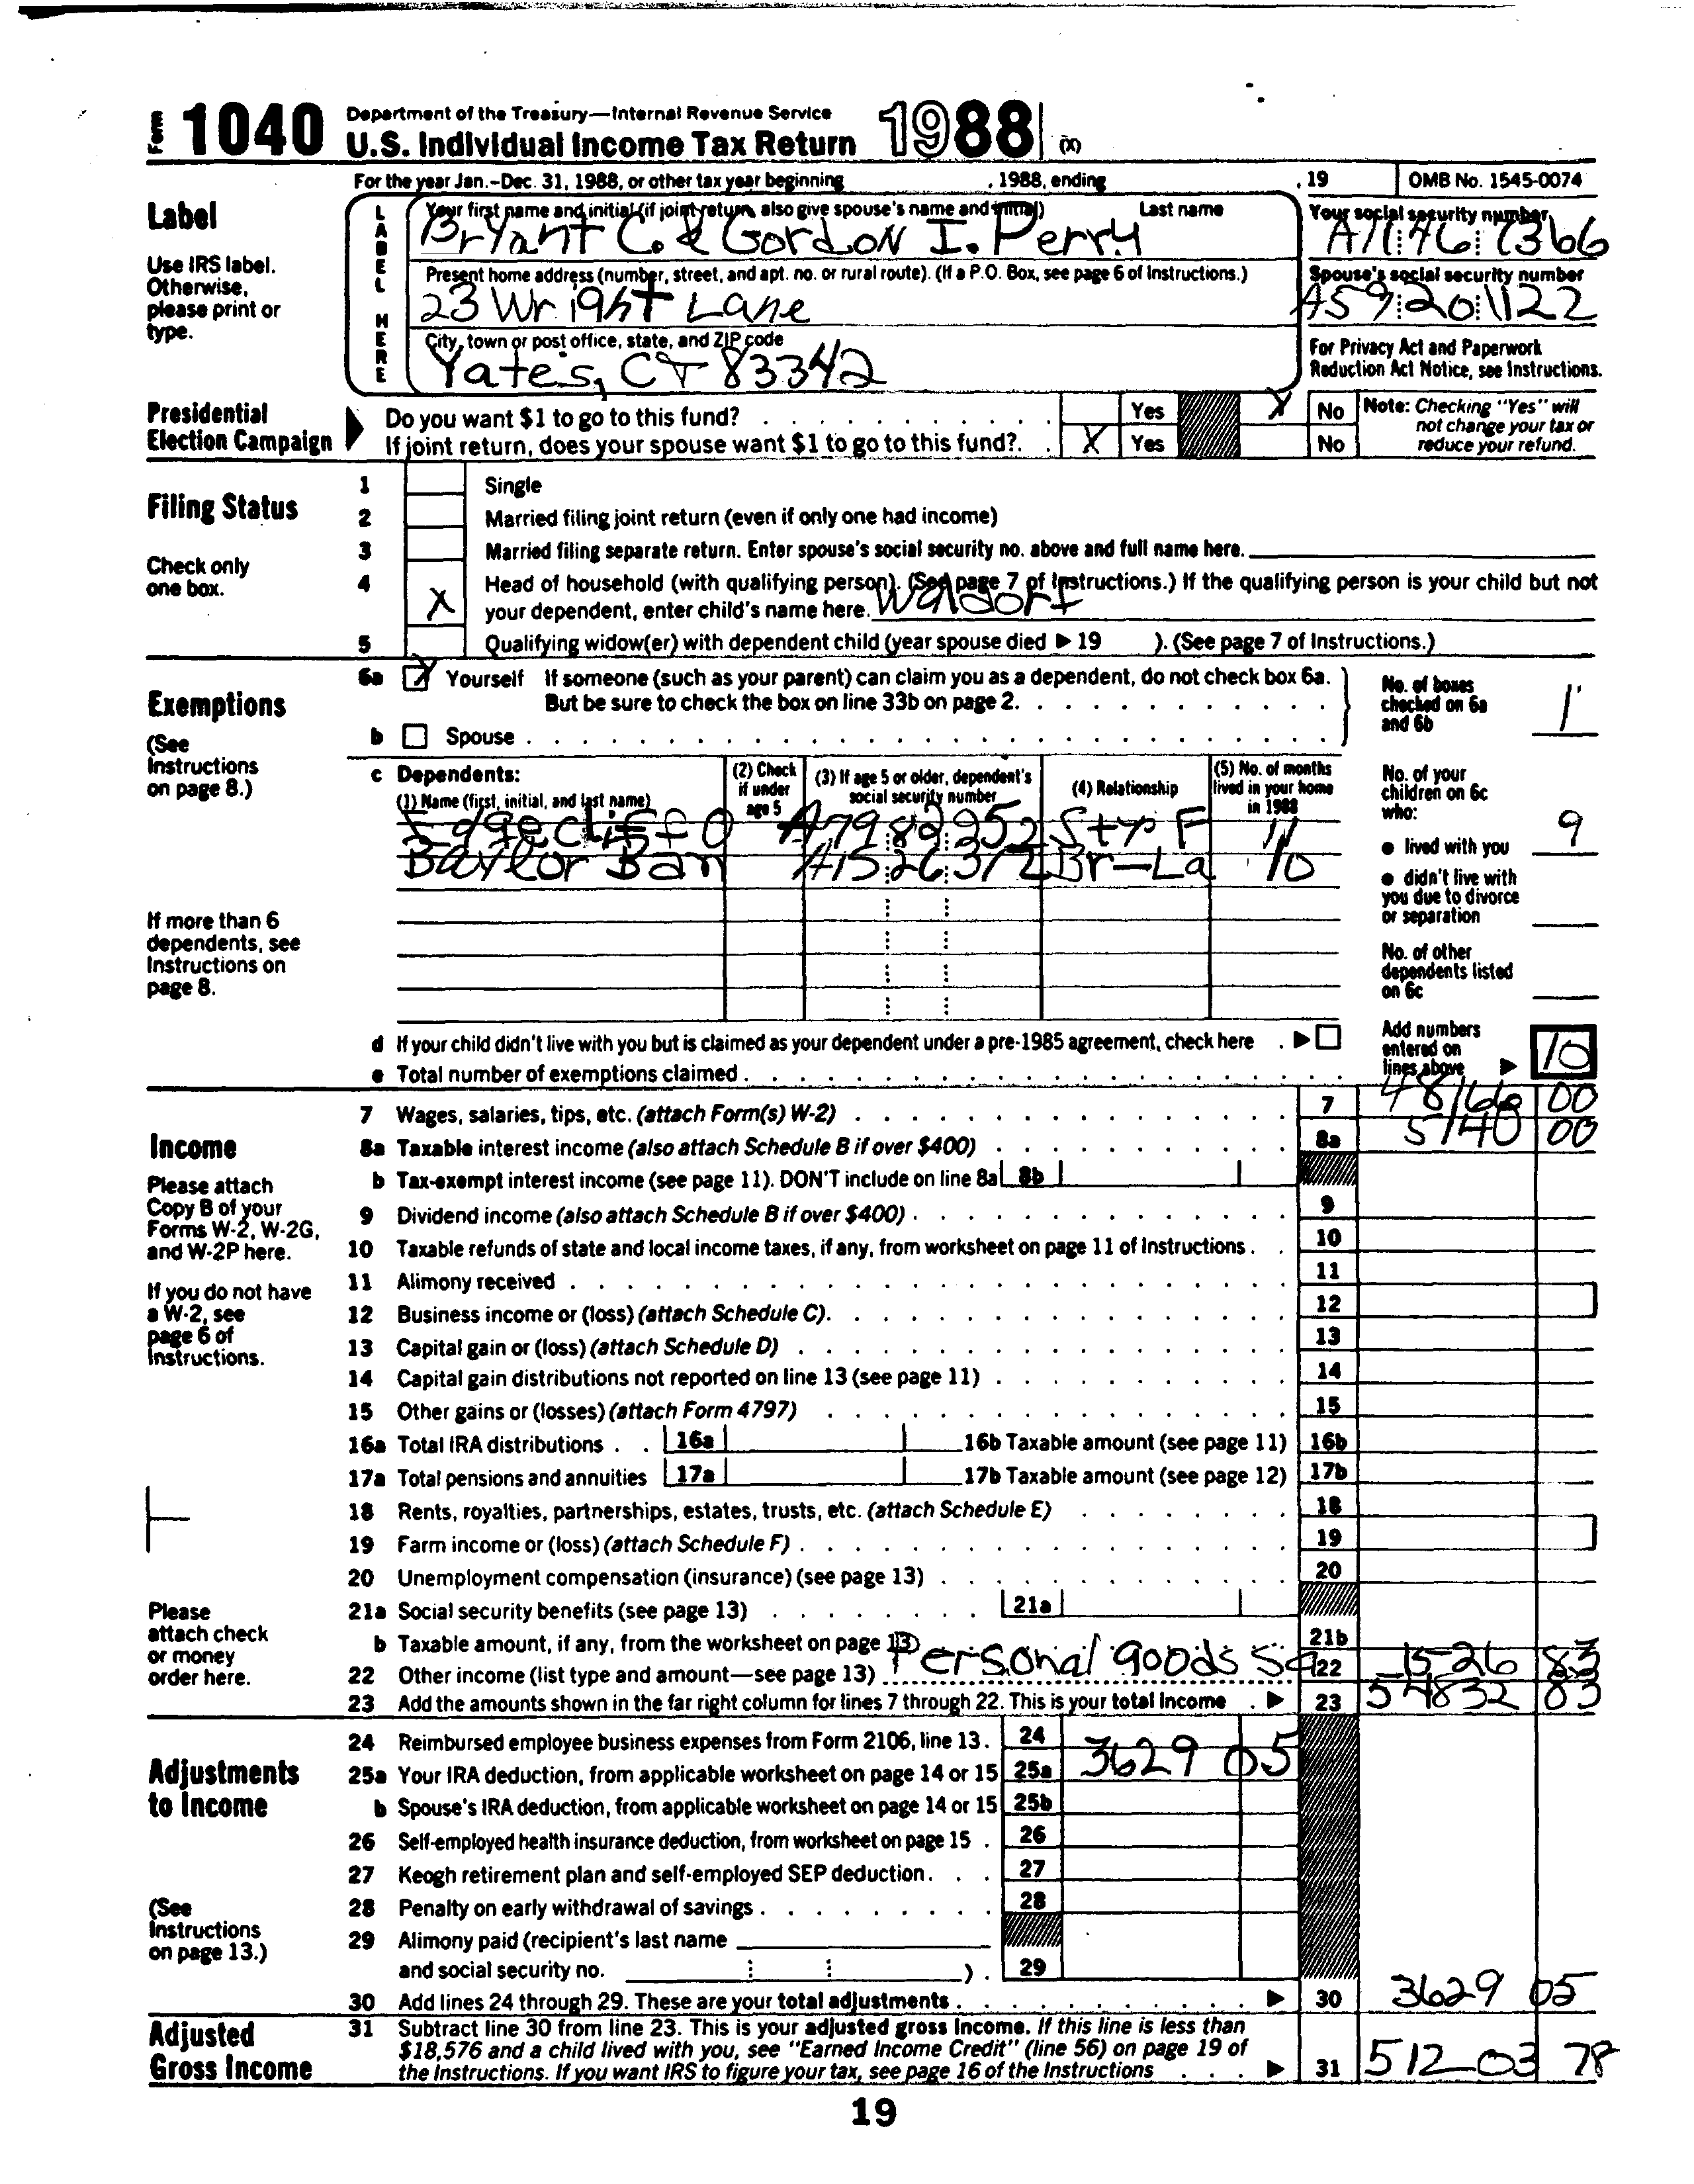 Form 1040 Department of the Treasury—Internal Revenue Service
U.S. Individual Income Tax Return 1988 (X)
For the year Jan.–Dec. 31, 1988, or other tax year beginning , 1988, ending , 19 OMB No. 1545-0074
Label
Use IRS label.
Otherwise,
please print or
type.
LABEL HERE
Your first name and initial (if joint return, also give spouse's name and initial) Last name
Bryant C. & Gordon I. Perry
Your social security number
A11 46 7366
Present home address (number, street, and apt. no. or rural route). (If a P.O. Box, see page 6 of Instructions.)
23 Wright Lane
Spouse's social security number
A59 20 1122
City, town or post office, state, and ZIP code
Yates, CT 83342
For Privacy Act and Paperwork
Reduction Act Notice, see Instructions.
Presidential
Election Campaign
Do you want $1 to go to this fund? Yes X No
If joint return, does your spouse want $1 to go to this fund? X Yes No
Note: Checking "Yes" will
not change your tax or
reduce your refund.
Filing Status
Check only
one box.
1 Single
2 Married filing joint return (even if only one had income)
3 Married filing separate return. Enter spouse's social security no. above and full name here.
4 X Head of household (with qualifying person). (See page 7 of Instructions.) If the qualifying person is your child but not
your dependent, enter child's name here. Waldorf
5 Qualifying widow(er) with dependent child (year spouse died ▶ 19 ). (See page 7 of Instructions.)
Exemptions
(See
Instructions
on page 8.)
6a X Yourself If someone (such as your parent) can claim you as a dependent, do not check box 6a.
But be sure to check the box on line 33b on page 2.
b Spouse
No. of boxes
checked on 6a
and 6b 1
c Dependents:
(1) Name (first, initial, and last name)
(2) Check
if under
age 5
(3) If age 5 or older, dependent's
social security number
(4) Relationship
(5) No. of months
lived in your home
in 1988
Edgecliff O A79 82 9952 Stp F 11
Baylor Ban A15 26 3172 Br-La 10
No. of your
children on 6c
who:
● lived with you 9
● didn't live with
you due to divorce
or separation
No. of other
dependents listed
on 6c
If more than 6
dependents, see
Instructions on
page 8.
d If your child didn't live with you but is claimed as your dependent under a pre-1985 agreement, check here ▶
e Total number of exemptions claimed
Add numbers
entered on
lines above ▶ 10
Income
Please attach
Copy B of your
Forms W-2, W-2G,
and W-2P here.
If you do not have
a W-2, see
page 6 of
Instructions.
Please
attach check
or money
order here.
7 Wages, salaries, tips, etc. (attach Form(s) W-2) 7 48166 00
8a Taxable interest income (also attach Schedule B if over $400) 8a 5140 00
b Tax-exempt interest income (see page 11). DON'T include on line 8a 8b
9 Dividend income (also attach Schedule B if over $400) 9
10 Taxable refunds of state and local income taxes, if any, from worksheet on page 11 of Instructions 10
11 Alimony received 11
12 Business income or (loss) (attach Schedule C) 12
13 Capital gain or (loss) (attach Schedule D) 13
14 Capital gain distributions not reported on line 13 (see page 11) 14
15 Other gains or (losses) (attach Form 4797) 15
16a Total IRA distributions 16a 16b Taxable amount (see page 11) 16b
17a Total pensions and annuities 17a 17b Taxable amount (see page 12) 17b
18 Rents, royalties, partnerships, estates, trusts, etc. (attach Schedule E) 18
19 Farm income or (loss) (attach Schedule F) 19
20 Unemployment compensation (insurance) (see page 13) 20
21a Social security benefits (see page 13) 21a
b Taxable amount, if any, from the worksheet on page 13 21b
22 Other income (list type and amount—see page 13) Personal goods Sa 22 1526 83
23 Add the amounts shown in the far right column for lines 7 through 22. This is your total income ▶ 23 54832 83
Adjustments
to Income
(See
Instructions
on page 13.)
24 Reimbursed employee business expenses from Form 2106, line 13 24
25a Your IRA deduction, from applicable worksheet on page 14 or 15 25a 3629 05
b Spouse's IRA deduction, from applicable worksheet on page 14 or 15 25b
26 Self-employed health insurance deduction, from worksheet on page 15 26
27 Keogh retirement plan and self-employed SEP deduction 27
28 Penalty on early withdrawal of savings 28
29 Alimony paid (recipient's last name
and social security no. ) 29
30 Add lines 24 through 29. These are your total adjustments ▶ 30 3629 05
Adjusted
Gross Income
31 Subtract line 30 from line 23. This is your adjusted gross income. If this line is less than
$18,576 and a child lived with you, see "Earned Income Credit" (line 56) on page 19 of
the Instructions. If you want IRS to figure your tax, see page 16 of the Instructions ▶ 31 51203 78
19